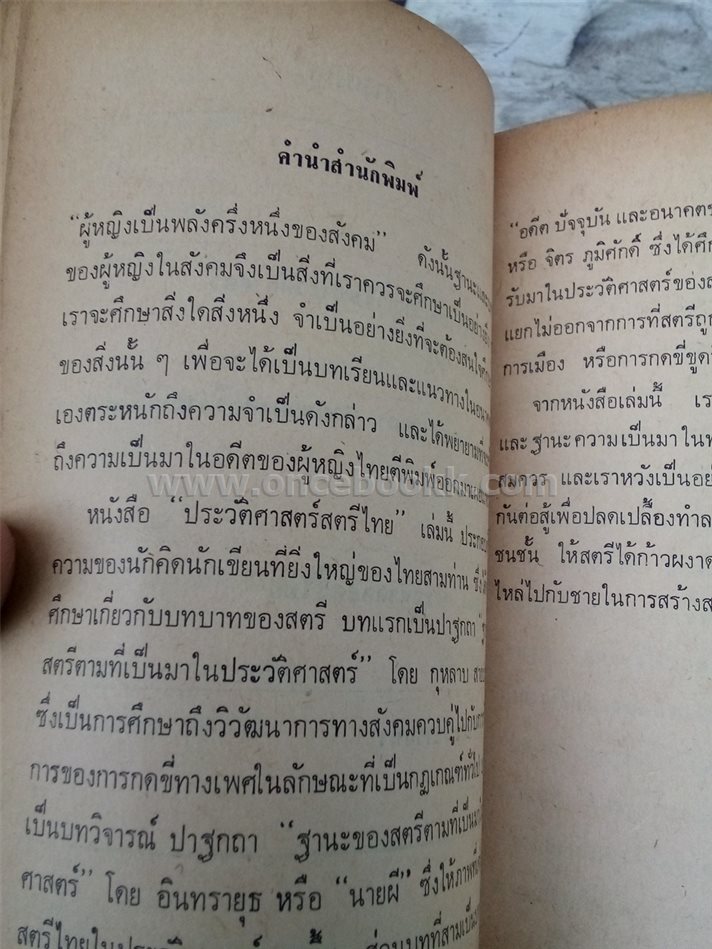 คำนำสำนักพิมพ์
“ผู้หญิงเป็นพลังครึ่งหนึ่งของสังคม” ดังนั้นฐานะและ
ของผู้หญิงในสังคมจึงเป็นสิ่งที่เราควรจะศึกษาเป็นอย่างยิ่ง
เราจะศึกษาสิ่งใดสิ่งหนึ่ง จำเป็นอย่างยิ่งที่จะต้องสนใจ
ของสิ่งนั้น ๆ เพื่อจะได้เป็นบทเรียนและแนวทางใน
เองตระหนักถึงความจำเป็นดังกล่าว และได้พยายามที่
ถึงความเป็นมาในอดีตของผู้หญิงไทยตีพิมพ์ออกมา
หนังสือ “ประวัติศาสตร์สตรีไทย” เล่มนี้ ประกอบ
ความของนักคิดนักเขียนที่ยิ่งใหญ่ของไทยสามท่าน ซึ่งได้
ศึกษาเกี่ยวกับบทบาทของสตรี บทแรกเป็นปาฐกถา
สตรีตามที่เป็นมาในประวัติศาสตร์” โดย กุหลาบ สาย
ซึ่งเป็นการศึกษาถึงวิวัฒนาการทางสังคมควบคู่ไปกับ
การของการกดขี่ทางเพศในลักษณะที่เป็นกฎเกณฑ์ทั่วไป
เป็นบทวิจารณ์ ปาฐกถา “ฐานะของสตรีตามที่เป็นมา
ศาสตร์” โดย อินทรายุธ หรือ “นายผี” ซึ่งให้ภาพ
สตรีไทยในประวัติ ส่วนบทที่สามเป็น
“อดีต ปัจจุบัน และอนาคต
หรือ จิตร ภูมิศักดิ์ ซึ่งได้ศึก
รับมาในประวัติศาสตร์ของส
แยกไม่ออกจากการที่สตรีถูก
การเมือง หรือการกดขี่ขูด
จากหนังสือเล่มนี้ เรา
และ ฐานะ ความ เป็น มา ใน
สมควร และเราหวังเป็นอย่
กันต่อสู้เพื่อปลดเปลื้องทำล
ชนชั้น ให้สตรีได้ก้าวผงาด
ไหล่ไปกับชายในการสร้างส
www.oncebookth.com